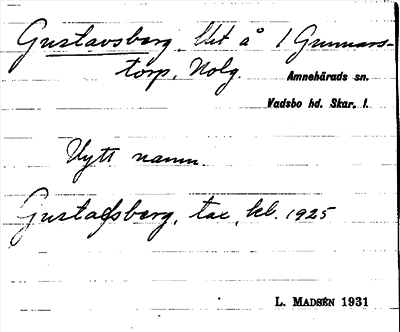 Gustavsberg, lht å 1 Gunnars-
torp, Nolg.
Amnehärads sn.
Vadsbo hd. Skar. l.
Nytt namn
Gustafsberg, tax, kb. 1925
L. MADSÉN 1931